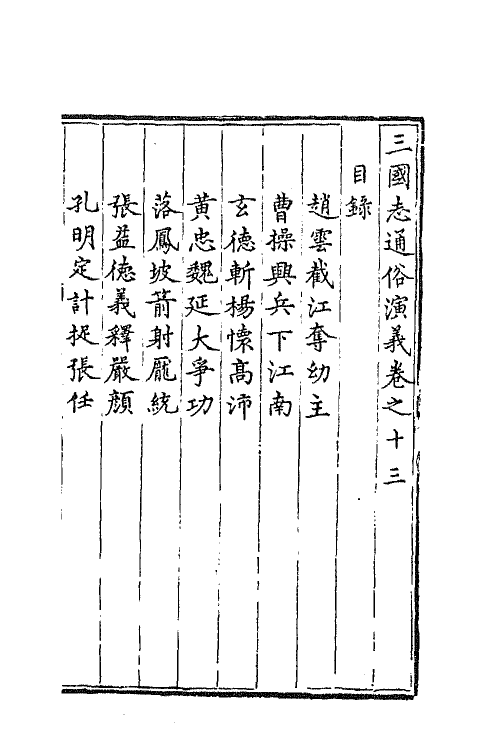 三國志通俗演義卷之十三
目錄
趙雲截江奪幼主
曹操興兵下江南
玄德斬楊懷高沛
黃忠魏延大爭功
落鳳坡箭射龐統
張益德義釋嚴顏
孔明定計捉張任